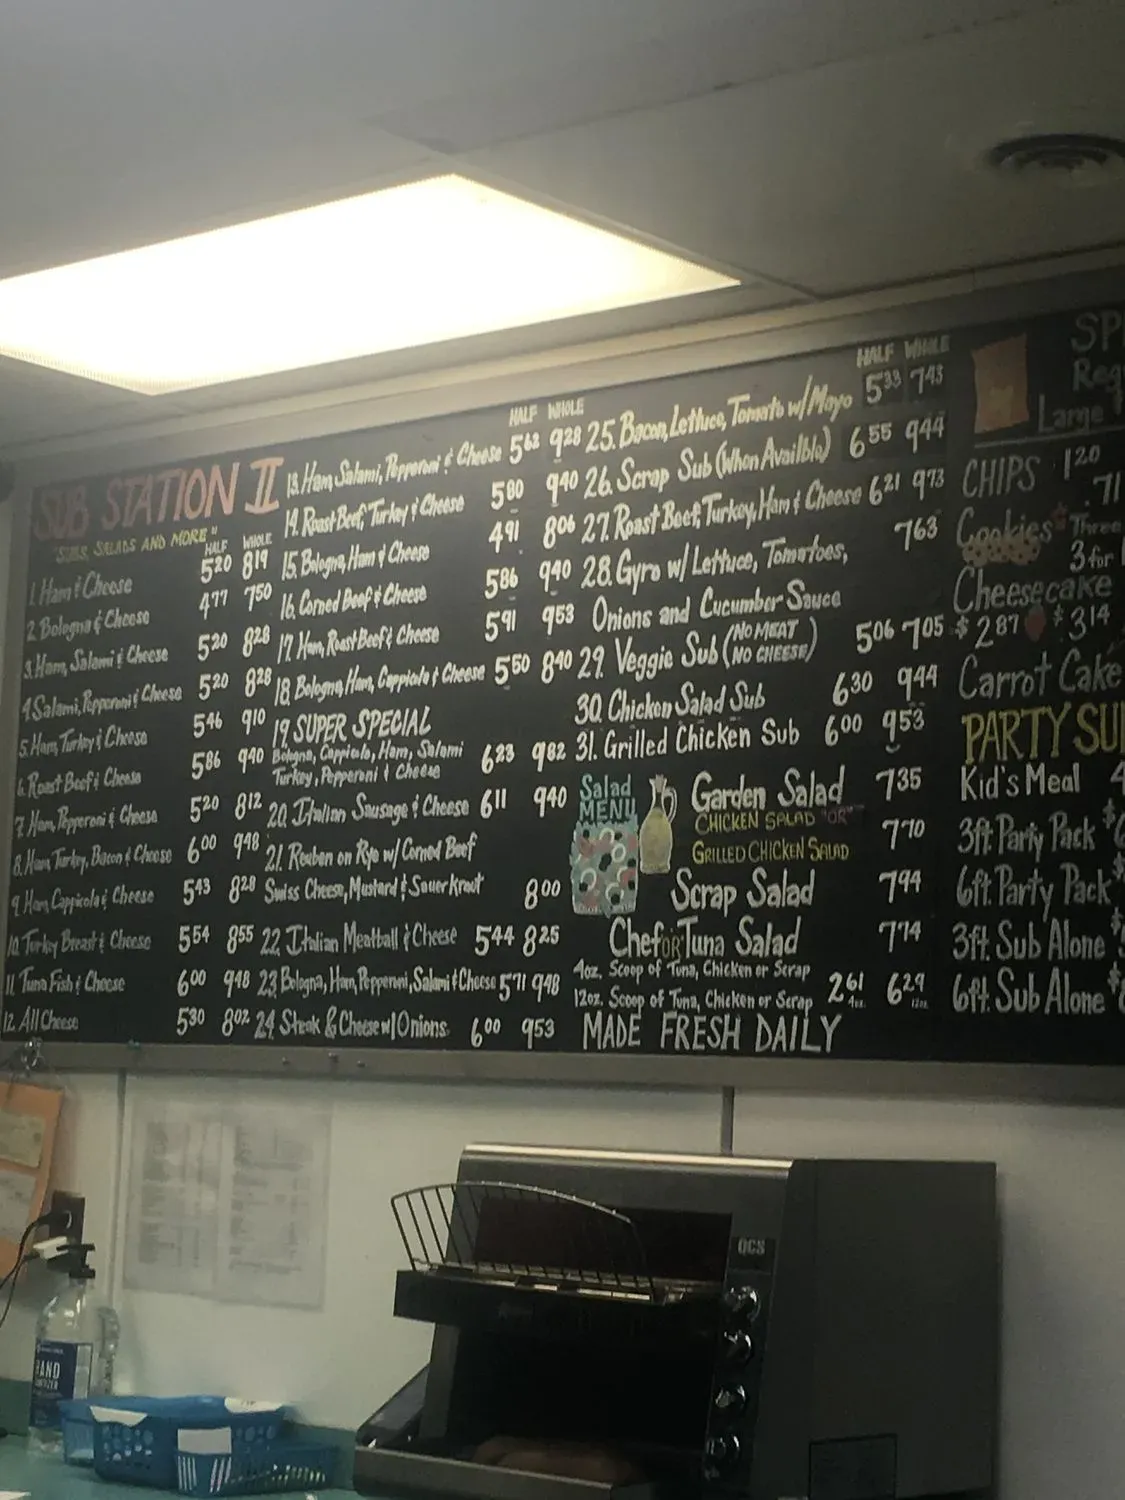 SUB STATION II
"SUBS, SALADS AND MORE"
HALF WHOLE
1. Ham & Cheese 5.20 8.19
2. Bologna & Cheese 4.77 7.50
3. Ham, Salami & Cheese 5.20 8.28
4. Salami, Pepperoni & Cheese 5.20 8.28
5. Ham, Turkey & Cheese 5.46 9.10
6. Roast Beef & Cheese 5.86 9.40
7. Ham, Pepperoni & Cheese 5.20 8.12
8. Ham, Turkey, Bacon & Cheese 6.00 9.48
9. Ham, Cappicola & Cheese 5.43 8.28
10. Turkey Breast & Cheese 5.54 8.55
11. Tuna Fish & Cheese 6.00 9.48
12. All Cheese 5.30 8.02
HALF WHOLE
13. Ham, Salami, Pepperoni & Cheese 5.62 9.28
14. Roast Beef, Turkey & Cheese 5.80 9.40
15. Bologna, Ham & Cheese 4.91 8.06
16. Corned Beef & Cheese 5.86 9.40
17. Ham, Roast Beef & Cheese 5.91 9.53
18. Bologna, Ham, Cappicola & Cheese 5.50 8.40
19. SUPER SPECIAL
Bologna, Cappicola, Ham, Salami
Turkey, Pepperoni & Cheese 6.23 9.82
20. Italian Sausage & Cheese 6.11 9.40
21. Reuben on Rye w/ Corned Beef
Swiss Cheese, Mustard & Sauer Kraut 8.00
22. Italian Meatball & Cheese 5.44 8.25
23. Bologna, Ham, Pepperoni, Salami & Cheese 5.71 9.48
24. Steak & Cheese w/ Onions 6.00 9.53
HALF WHOLE
25. Bacon, Lettuce, Tomato w/ Mayo 5.33 7.43
26. Scrap Sub (When Availble) 6.55 9.44
27. Roast Beef, Turkey, Ham & Cheese 6.21 9.73
28. Gyro w/ Lettuce, Tomatoes, 7.63
Onions and Cucumber Sauce
29. Veggie Sub (NO MEAT NO CHEESE) 5.06 7.05
30. Chicken Salad Sub 6.30 9.44
31. Grilled Chicken Sub 6.00 9.53
Salad
MENU
Garden Salad 7.35
CHICKEN SALAD "OR"
GRILLED CHICKEN SALAD 7.70
Scrap Salad 7.94
Chef OR Tuna Salad 7.74
4oz. Scoop of Tuna, Chicken or Scrap
12oz. Scoop of Tuna, Chicken or Scrap 2.61 4oz. 6.29 12oz.
MADE FRESH DAILY
SP
Reg
Large
CHIPS 1.20
.71
Cookies Three
3 for
Cheesecake
$2.87 $3.14
Carrot Cake
PARTY SU
Kid's Meal 4
3ft. Party Pack $
6ft. Party Pack $
3ft. Sub Alone $
6ft. Sub Alone $
QCS
HAND